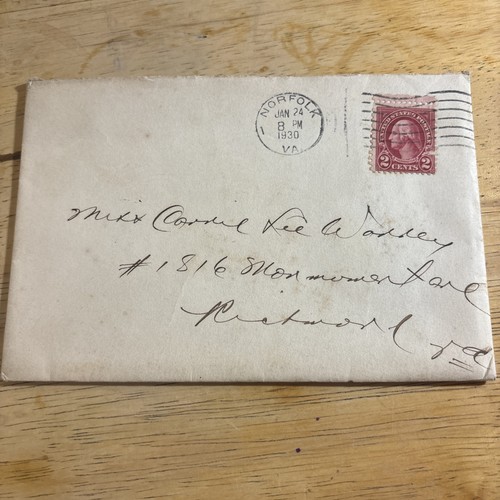 NORFOLK
JAN 24
8 PM
1930
VA.
1
UNITED STATES POSTAGE
2 CENTS 2
Miss Carrie Lee
#1816 Monument Ave
Richmond Va